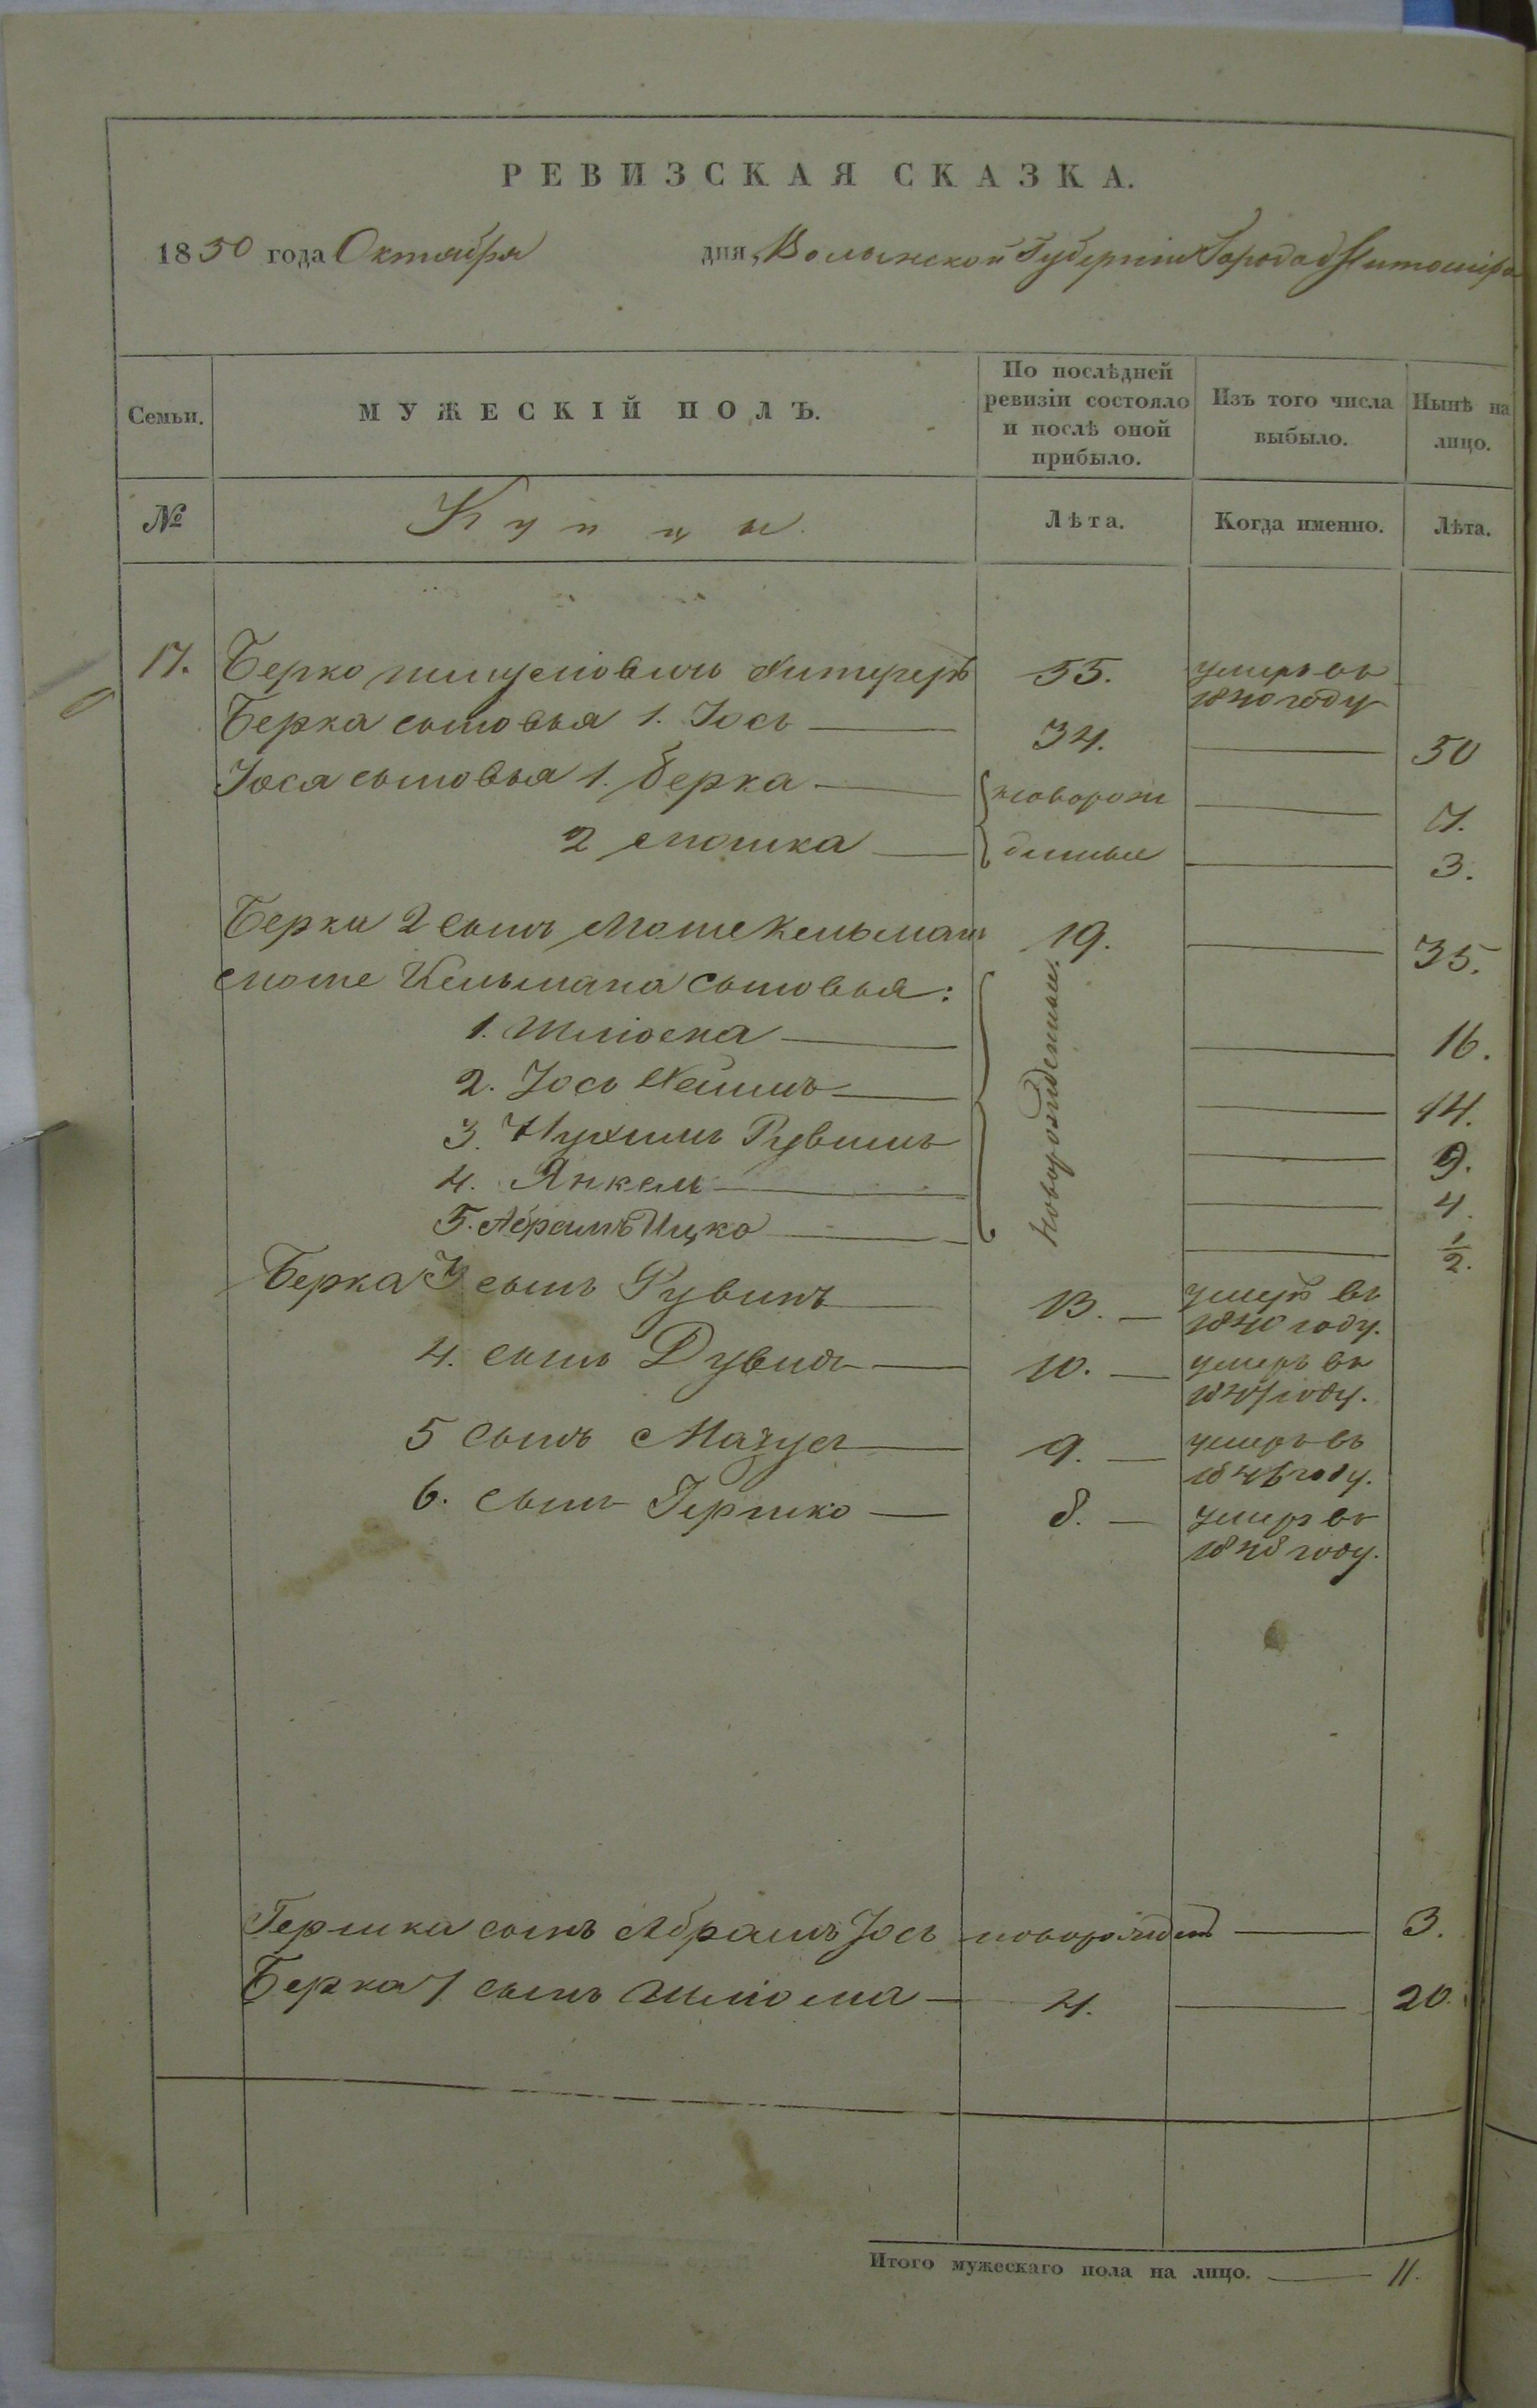 РЕВИЗСКАЯ СКАЗКА.
1850 года Октября дня, Волынской Губерніи Города Житоміра
Семьи. МУЖЕСКІЙ ПОЛЪ. По послѣдней ревизіи состояло и послѣ оной прибыло. Изъ того числа выбыло. Нынѣ на лицо.
№ Купцы. Лѣта. Когда именно. Лѣта.
17. Берко 55. умеръ въ 1840 году
Берка сыновья 1. Іось 34. 50
Іося сыновья 1. Берка новорож 7.
2 Мошка денные 3.
Берки 2 сынъ Моше Кельман 19. 35.
Моше Кельмана сыновья: новорожденные.
1. Шліома 16.
2. Іось Хаимъ 14.
3. Нухимъ Рувинъ 9.
4. Янкель 4.
5. Абрамъ Ицко 1/2.
Берка 3 сынъ Рувинъ 13. умеръ въ 1840 году.
4. сынъ Дувидъ 10. умеръ въ году.
5 сынъ 9. умеръ въ 1846 году.
6. сынъ Гершко 8. умеръ въ 1848 году.
Гершка сынъ Абрамъ Іось новорожден 3.
Берка 7 сынъ Шліома 4. 20.
Итого мужескаго пола на лицо. 11.